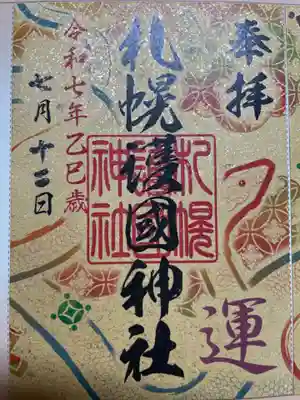 奉拝
札幌護國神社
札幌
護國
神社
運
令和七年乙巳歳
七月十二日